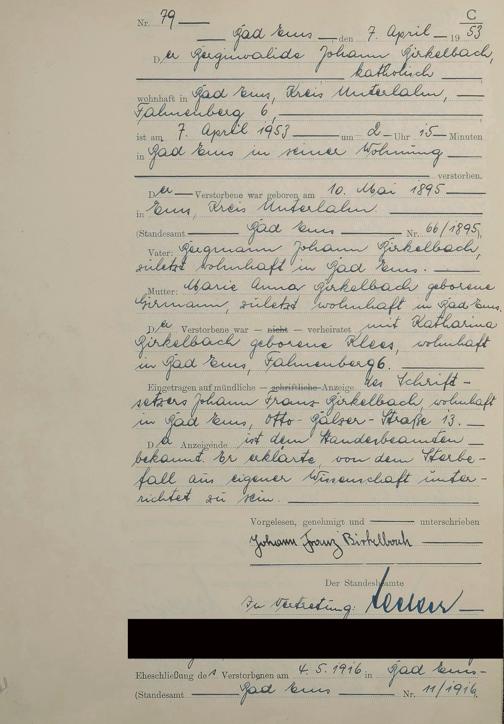 C
Nr. 79
Bad Ems den 7. April 1953
Der Berginvalide Johann Birkelbach,
katholisch
wohnhaft in Bad Ems, Kreis Unterlahn,
Fahnenberg 6,
ist am 7. April 1953 um 2 Uhr 15 Minuten
in Bad Ems in seiner Wohnung
verstorben.
Der Verstorbene war geboren am 10. Mai 1895
in Ems, Kreis Unterlahn
(Standesamt Bad Ems Nr. 66/1895)
Vater: Bergmann Johann Birkelbach,
zuletzt wohnhaft in Bad Ems.
Mutter: Marie Anna Birkelbach geborene
zuletzt wohnhaft in Bad Ems.
Der Verstorbene war — nicht — verheiratet mit Katharina
Birkelbach geborene Klees, wohnhaft
in Bad Ems, Fahnenberg 6.
Eingetragen auf mündliche — schriftliche Anzeige des Schrift-
setzers Johann Franz Birkelbach, wohnhaft
in Bad Ems, Otto-Balser-Straße 13.
Der Anzeigende ist dem Standesbeamten
bekannt. Er erklärte, von dem Sterbe-
fall aus eigener Wissenschaft unter-
richtet zu sein.
Vorgelesen, genehmigt und unterschrieben
Johann Franz Birkelbach
Der Standesbeamte
In Vertretung:
Eheschließung des Verstorbenen am 4.5.1916 in Bad Ems
(Standesamt Bad Ems Nr. 11/1916)